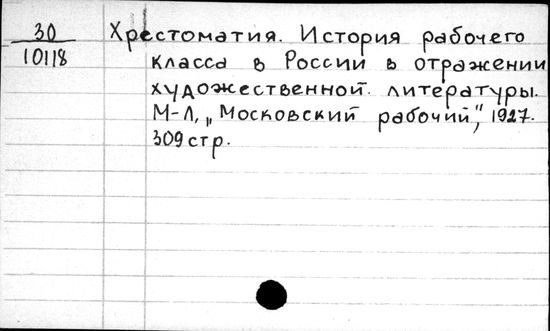 30
10118
Хрестоматия. История рабочего
класса в России в отражении
художественной литературы.
М-Л, „Московский рабочий", 1927.
309 стр.